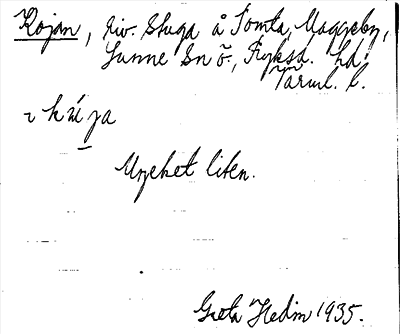 Kojan, riv. stuga å Tomta, Maggeby,
Sunne Sn ö., Fryksd. hd.
Värml. l.
Mycket liten.
Greta Hedin 1935.